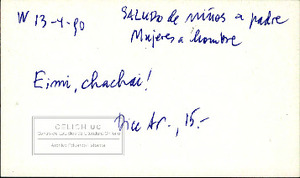 W 13-4-90
SALUDO de niños a padre
Mujeres a hombre
Eimi, chachai!
Dice Ar., 15.-
CELICH UC